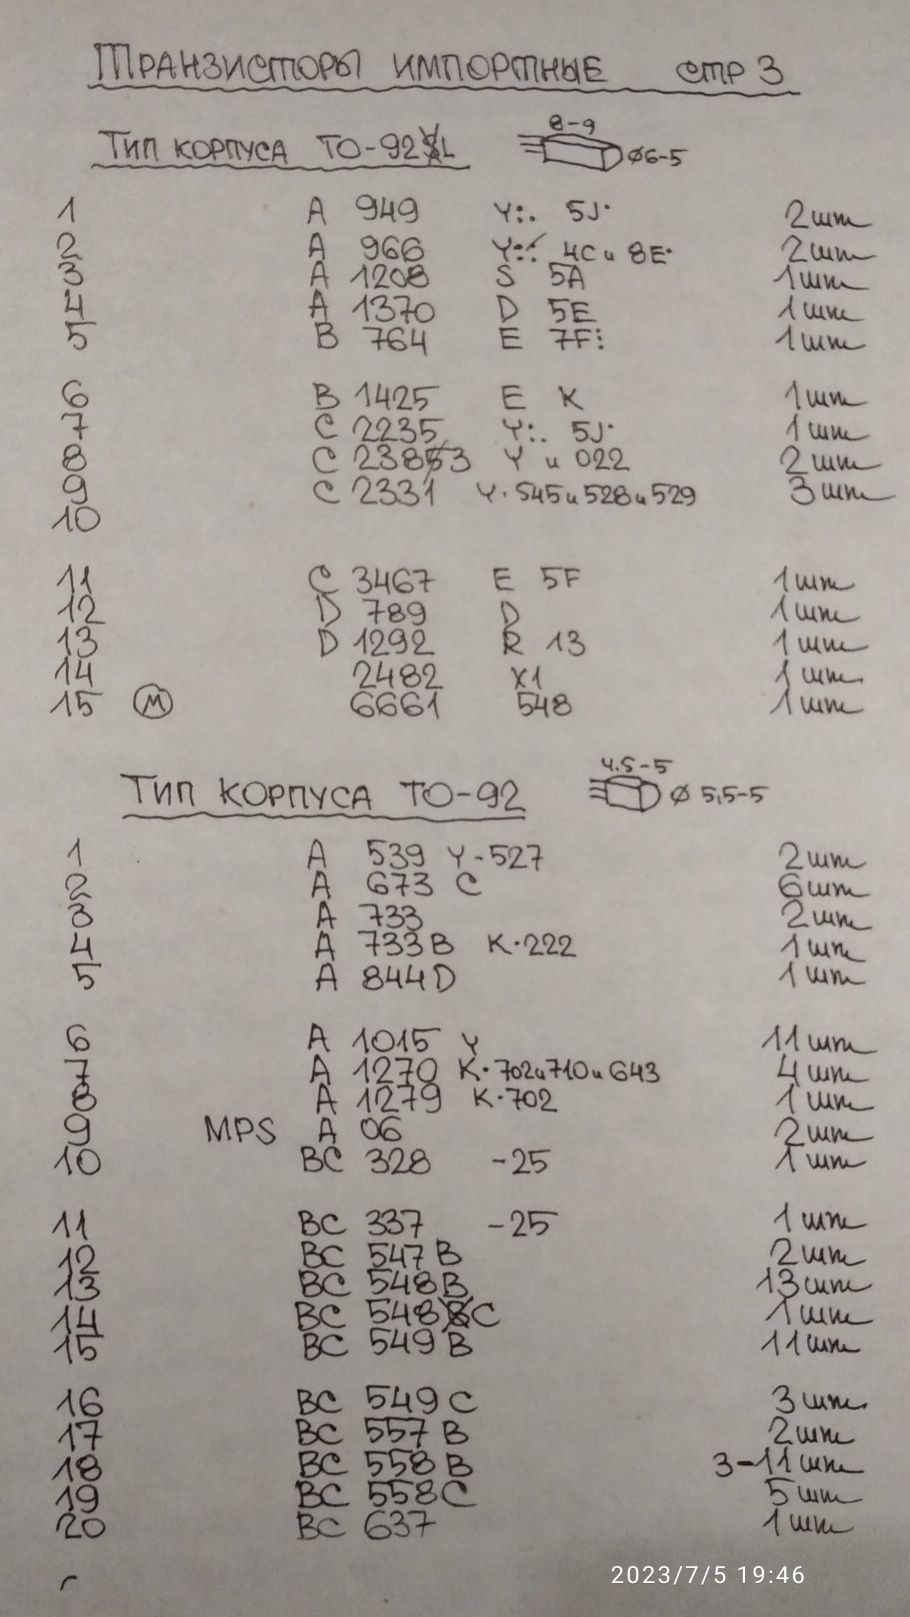 ТРАНЗИСТОРЫ ИМПОРТНЫЕ СТР 3
ТИП КОРПУСА ТО-92L 8-9 Ø6-5
1 A 949 Y:. 5J· 2шт
2 A 966 Y:: 4C и 8E· 2шт
3 A 1208 S 5A 1шт
4 A 1370 D 5E 1шт
5 B 764 E 7F: 1шт
6 B 1425 E K 1шт
7 C 2235 Y:. 5J· 1шт
8 C 2383 Y и 022 2шт
9 C 2331 Y·545и528и529 3шт
10
11 C 3467 E 5F 1шт
12 D 789 D 1шт
13 D 1292 R 13 1шт
14 2482 X1 1шт
15 M 6661 548 1шт
ТИП КОРПУСА ТО-92 4.5-5 Ø 5,5-5
1 A 539 Y-527 2шт
2 A 673 C 6шт
3 A 733 2шт
4 A 733B K·222 1шт
5 A 844D 1шт
6 A 1015 Y 11шт
7 A 1270 K·702и710и643 4шт
8 A 1279 K·702 1шт
9 MPS A 06 2шт
10 BC 328 -25 1шт
11 BC 337 -25 1шт
12 BC 547B 2шт
13 BC 548B 13шт
14 BC 548C 1шт
15 BC 549B 11шт
16 BC 549C 3шт
17 BC 557B 2шт
18 BC 558B 3-11шт
19 BC 558C 5шт
20 BC 637 1шт
2023/7/5 19:46